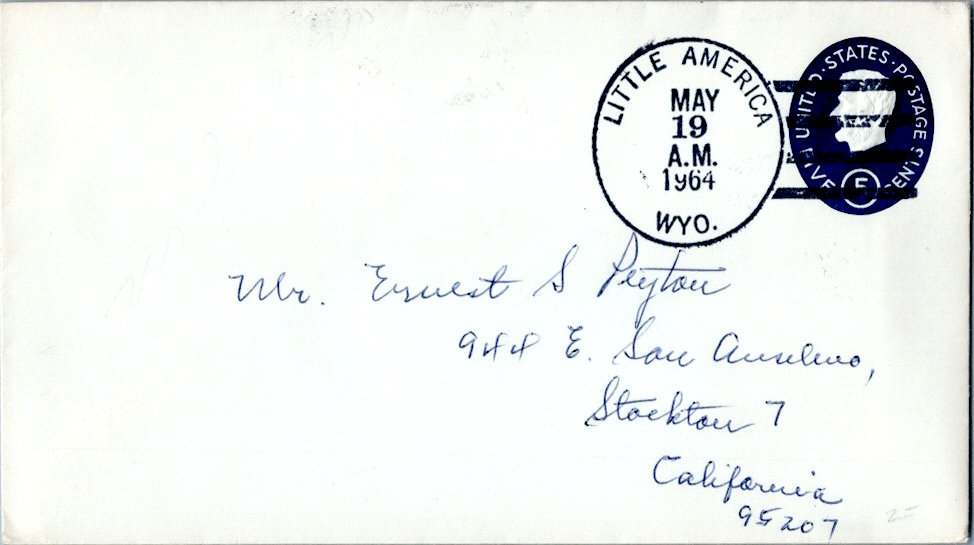 LITTLE AMERICA
MAY
19
A.M.
1964
WYO.
UNITED STATES POSTAGE
FIVE 5 CENTS
Mr. Ernest S Peyton
944 E. San Anselmo,
Stockton 7
California
95207
25